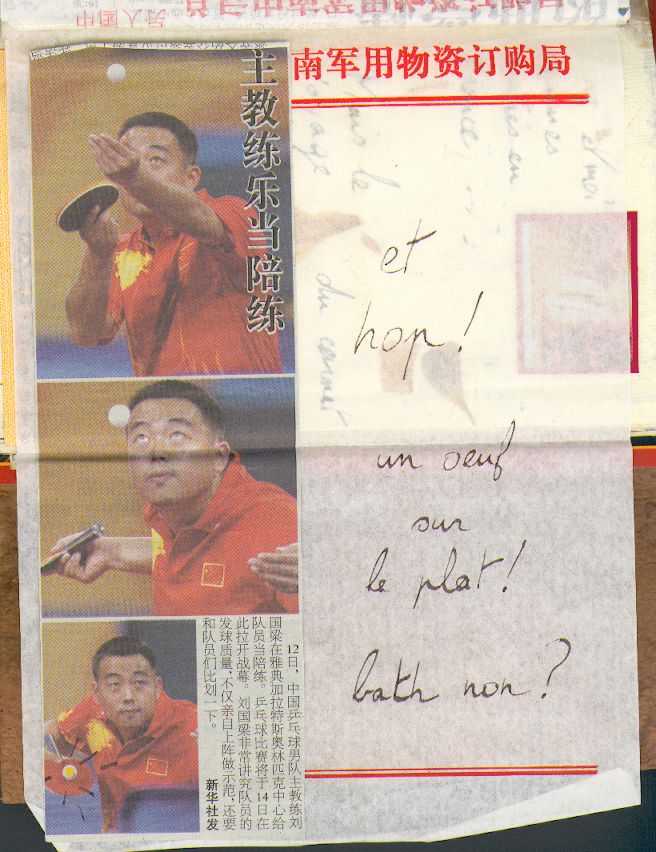 南军用物资订购局
主教练乐当陪练
et
hop!
un oeuf
sur
le plat!
bath non?
12日，中国乒乓球男队主教练刘
国梁在雅典加拉特斯奥林匹克中心给
队员当陪练。乒乓球比赛将于14日在
此拉开战幕。刘国梁非常讲究队员的
发球质量，不仅亲自上阵做示范，还要
和队员们比划一下。
新华社发
du carnet
voyage
et moi